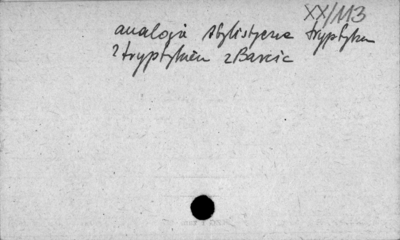 XX/113
analogia stylistyczna tryptyku
z tryptykiem z Barcic